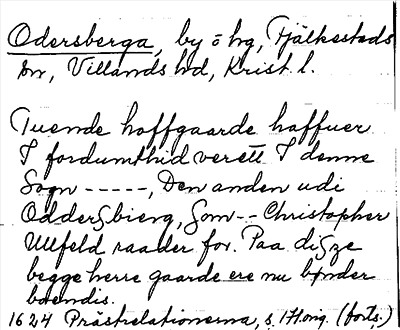 Odersberga, by o hg, Fjälkestads
sn, Villands hd, Krist. l.
Tuende hoffgaarde haffuer
I fordumthid verett I denne
Sogn -----, Den anden udi
Oddersbierg, Som -- Christopher
Ulfeld raader for. Paa disze
begge herre gaarde ere nu bønder
boendis.
1624 Prästrelationerna, s. 171 orig. (forts.)